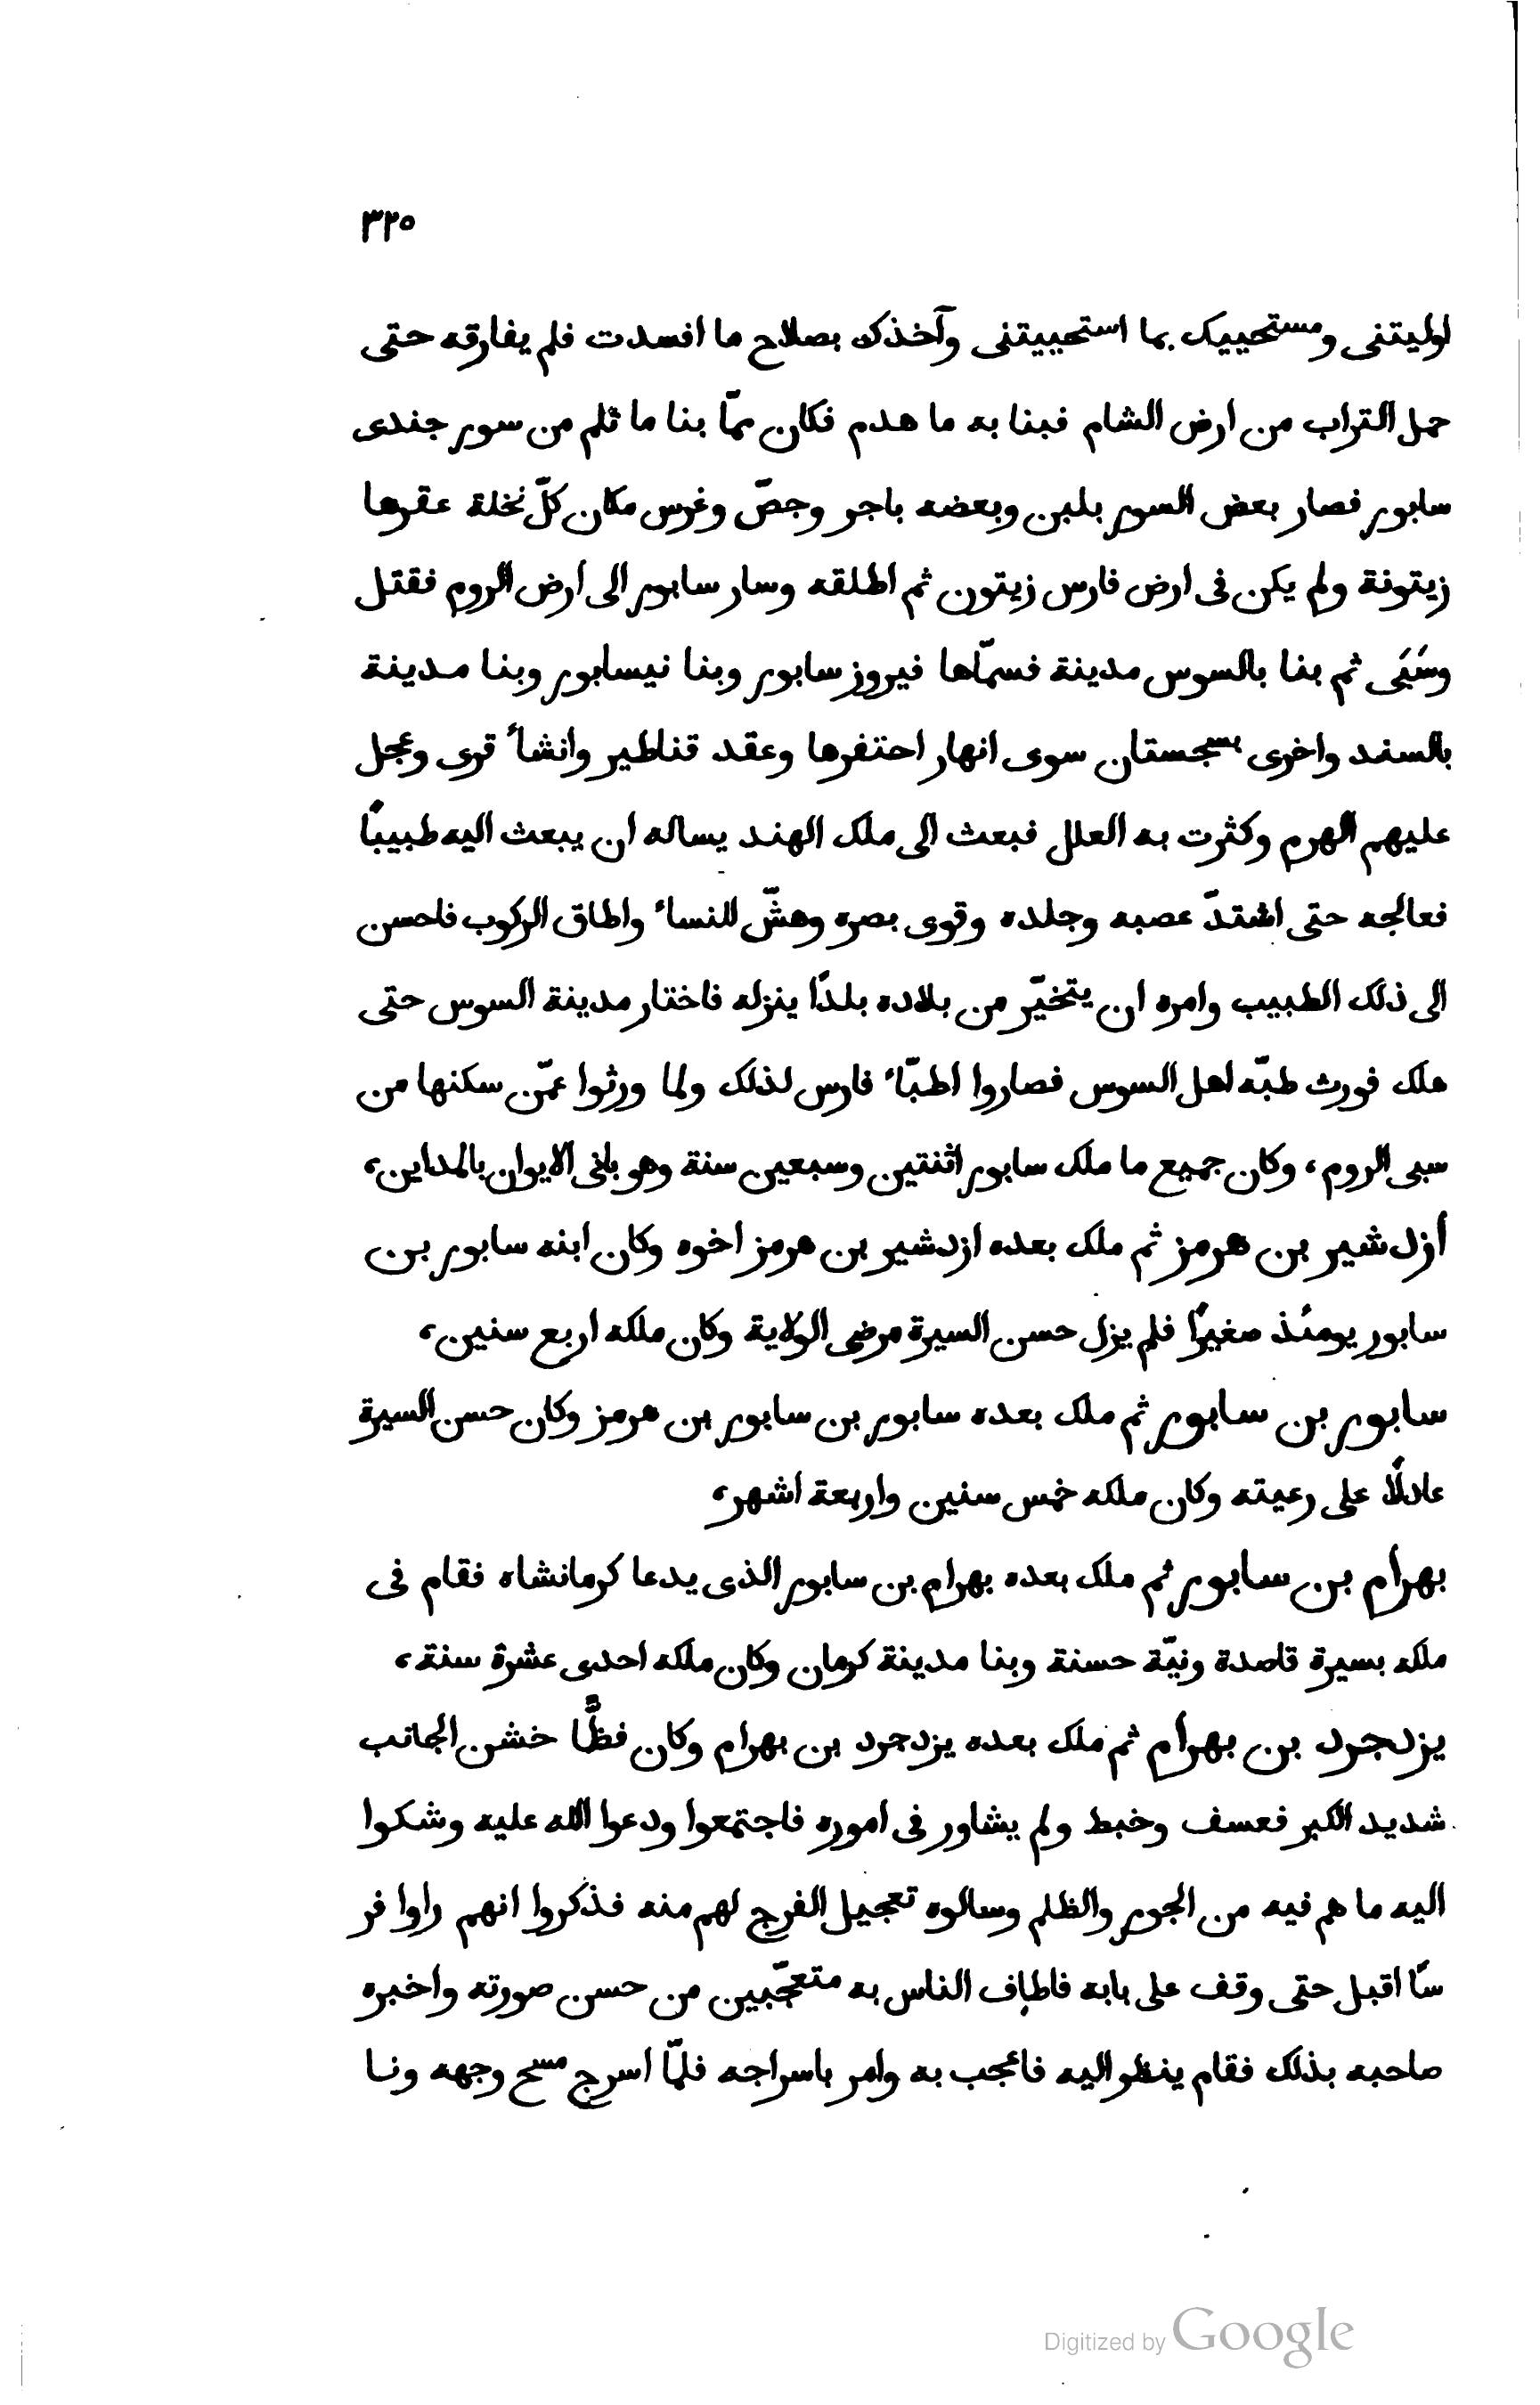 ٣٢٥
اوليتنى ومستحييك بما استحييتنى وآخذك بصلاح ما افسدت فلم يفارقه حتى
حمل التراب من ارض الشام فبنا به ما هدم فكان ممّا بنا ما ثلم من سور جندى
سابور فصار بعض السور بلبن وبعضه باجر وجصّ وغرس مكان كلّ نخلة عقرها
زيتونة ولم يكن فى ارض فارس زيتون ثم اطلقه وسار سابور الى ارض الروم فقتل
وسَبَى ثم بنا بالسوس مدينة فسمّاها فيروز سابور وبنا نيسابور وبنا مدينة
بالسند واخرى بسجستان سوى انهار احتفرها وعقد قناطير وانشاء قرى وعجل
عليهم الهرم وكثرت به العلل فبعث الى ملك الهند يساله ان يبعث اليه طبيبًا
فعالجه حتى اشتدّ عصبه وجلده وقوى بصره وهشّ للنساء واطاق الركوب فاحسن
الى ذلك الطبيب وامره ان يتخيّر من بلاده بلدًا ينزله فاختار مدينة السوس حتى
هلك فورث طبّه اهل السوس فصاروا اطبّاء فارس لذلك ولما ورثوا عمّن سكنها من
سبى الروم، وكان جميع ما ملك سابور اثنتين وسبعين سنة وهو بانى الايوان بالمداين،
أزدشير بن هرمز ثم ملك بعده ازدشير بن هرمز اخوه وكان ابنه سابور بن
سابور يومئذ صغيرًا فلم يزل حسن السيرة مرضى الولاية وكان ملكه اربع سنين،
سابور بن سابور ثم ملك بعده سابور بن سابور بن هرمز وكان حسن السيرة
عادلًا على رعيته وكان ملكه خمس سنين واربعة اشهر،
بهرام بن سابور ثم ملك بعده بهرام بن سابور الذى يدعا كرمانشاه فقام فى
ملكه بسيرة قاصدة ونيّة حسنة وبنا مدينة كرمان وكان ملكه احدى عشرة سنة،
يزدجرد بن بهرام ثم ملك بعده يزدجرد بن بهرام وكان فظًّا خشن الجانب
شديد الكبر فعسف وخبط ولم يشاور فى اموره فاجتمعوا ودعوا الله عليه وشكوا
اليه ما هم فيه من الجور والظلم وسالوه تعجيل الفرج لهم منه فذكروا انهم راوا فر
سًا اقبل حتى وقف على بابه فاطاف الناس به متعجّبين من حسن صورته واخبره
صاحبه بذلك فقام ينظر اليه فاعجب به وامر باسراجه فلمّا اسرج مسح وجهه ونا
Digitized by Google